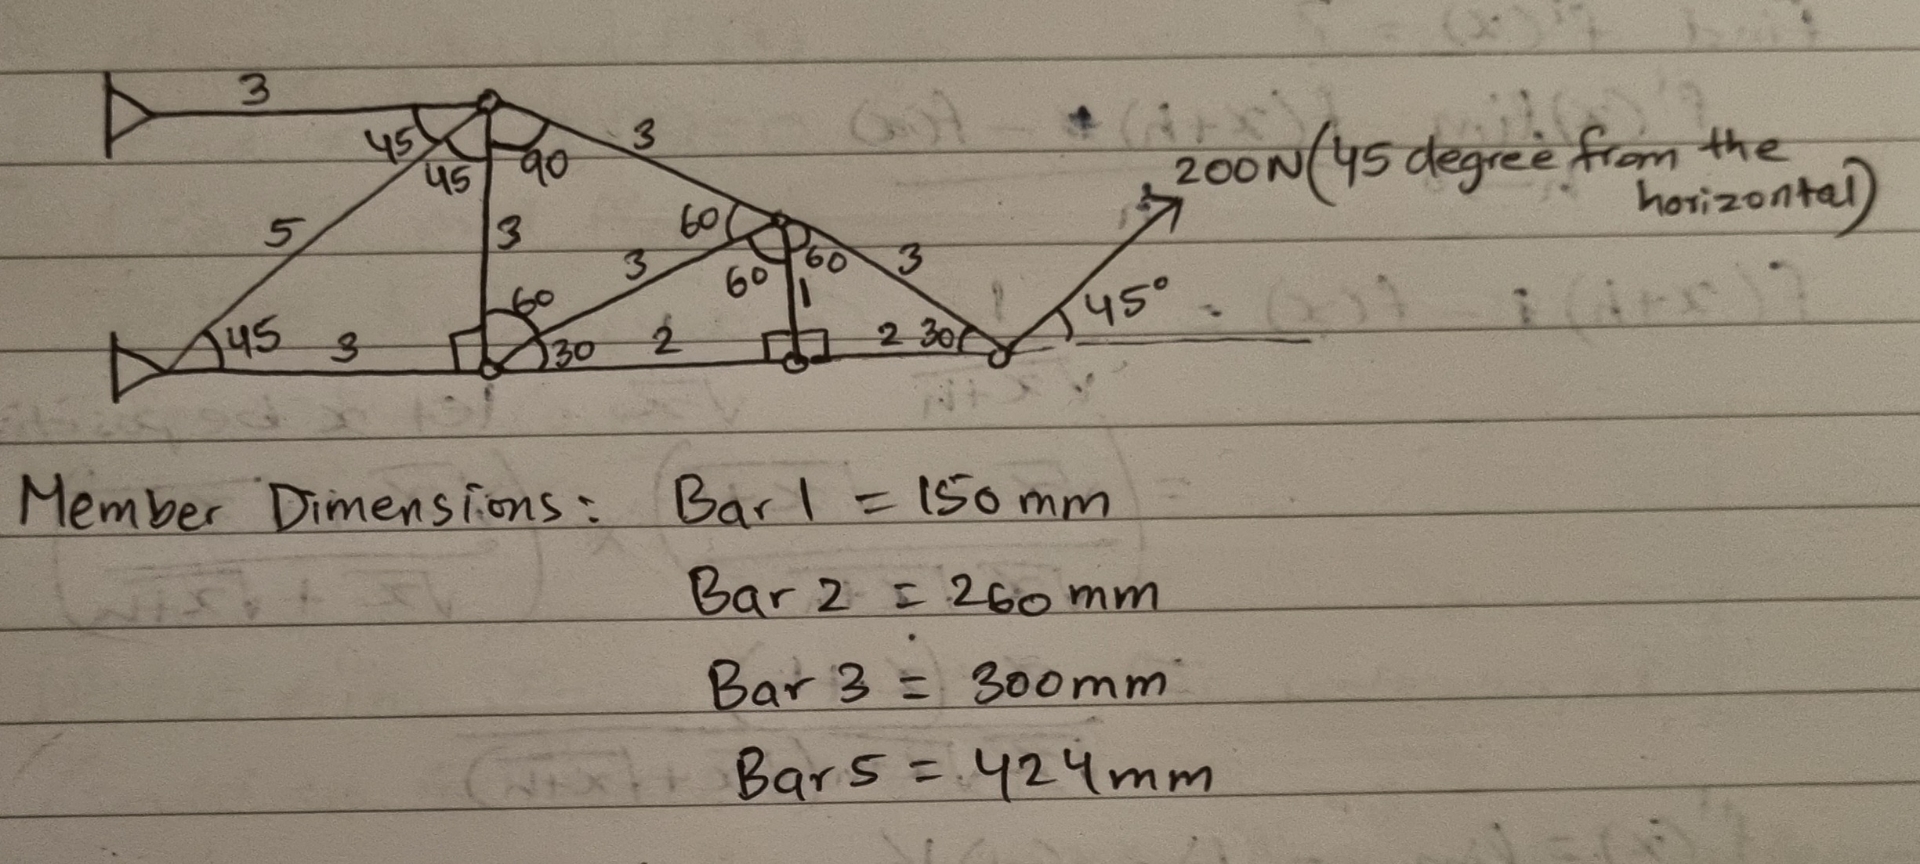 3
45
45
90
3
200N (45 degree from the
horizontal)
5
3
60
3
60
60
1
3
45°
60
45
3
30
2
2
30
Member Dimensions: Bar 1 = 150 mm
Bar 2 = 260 mm
Bar 3 = 300mm
Bar 5 = 424mm